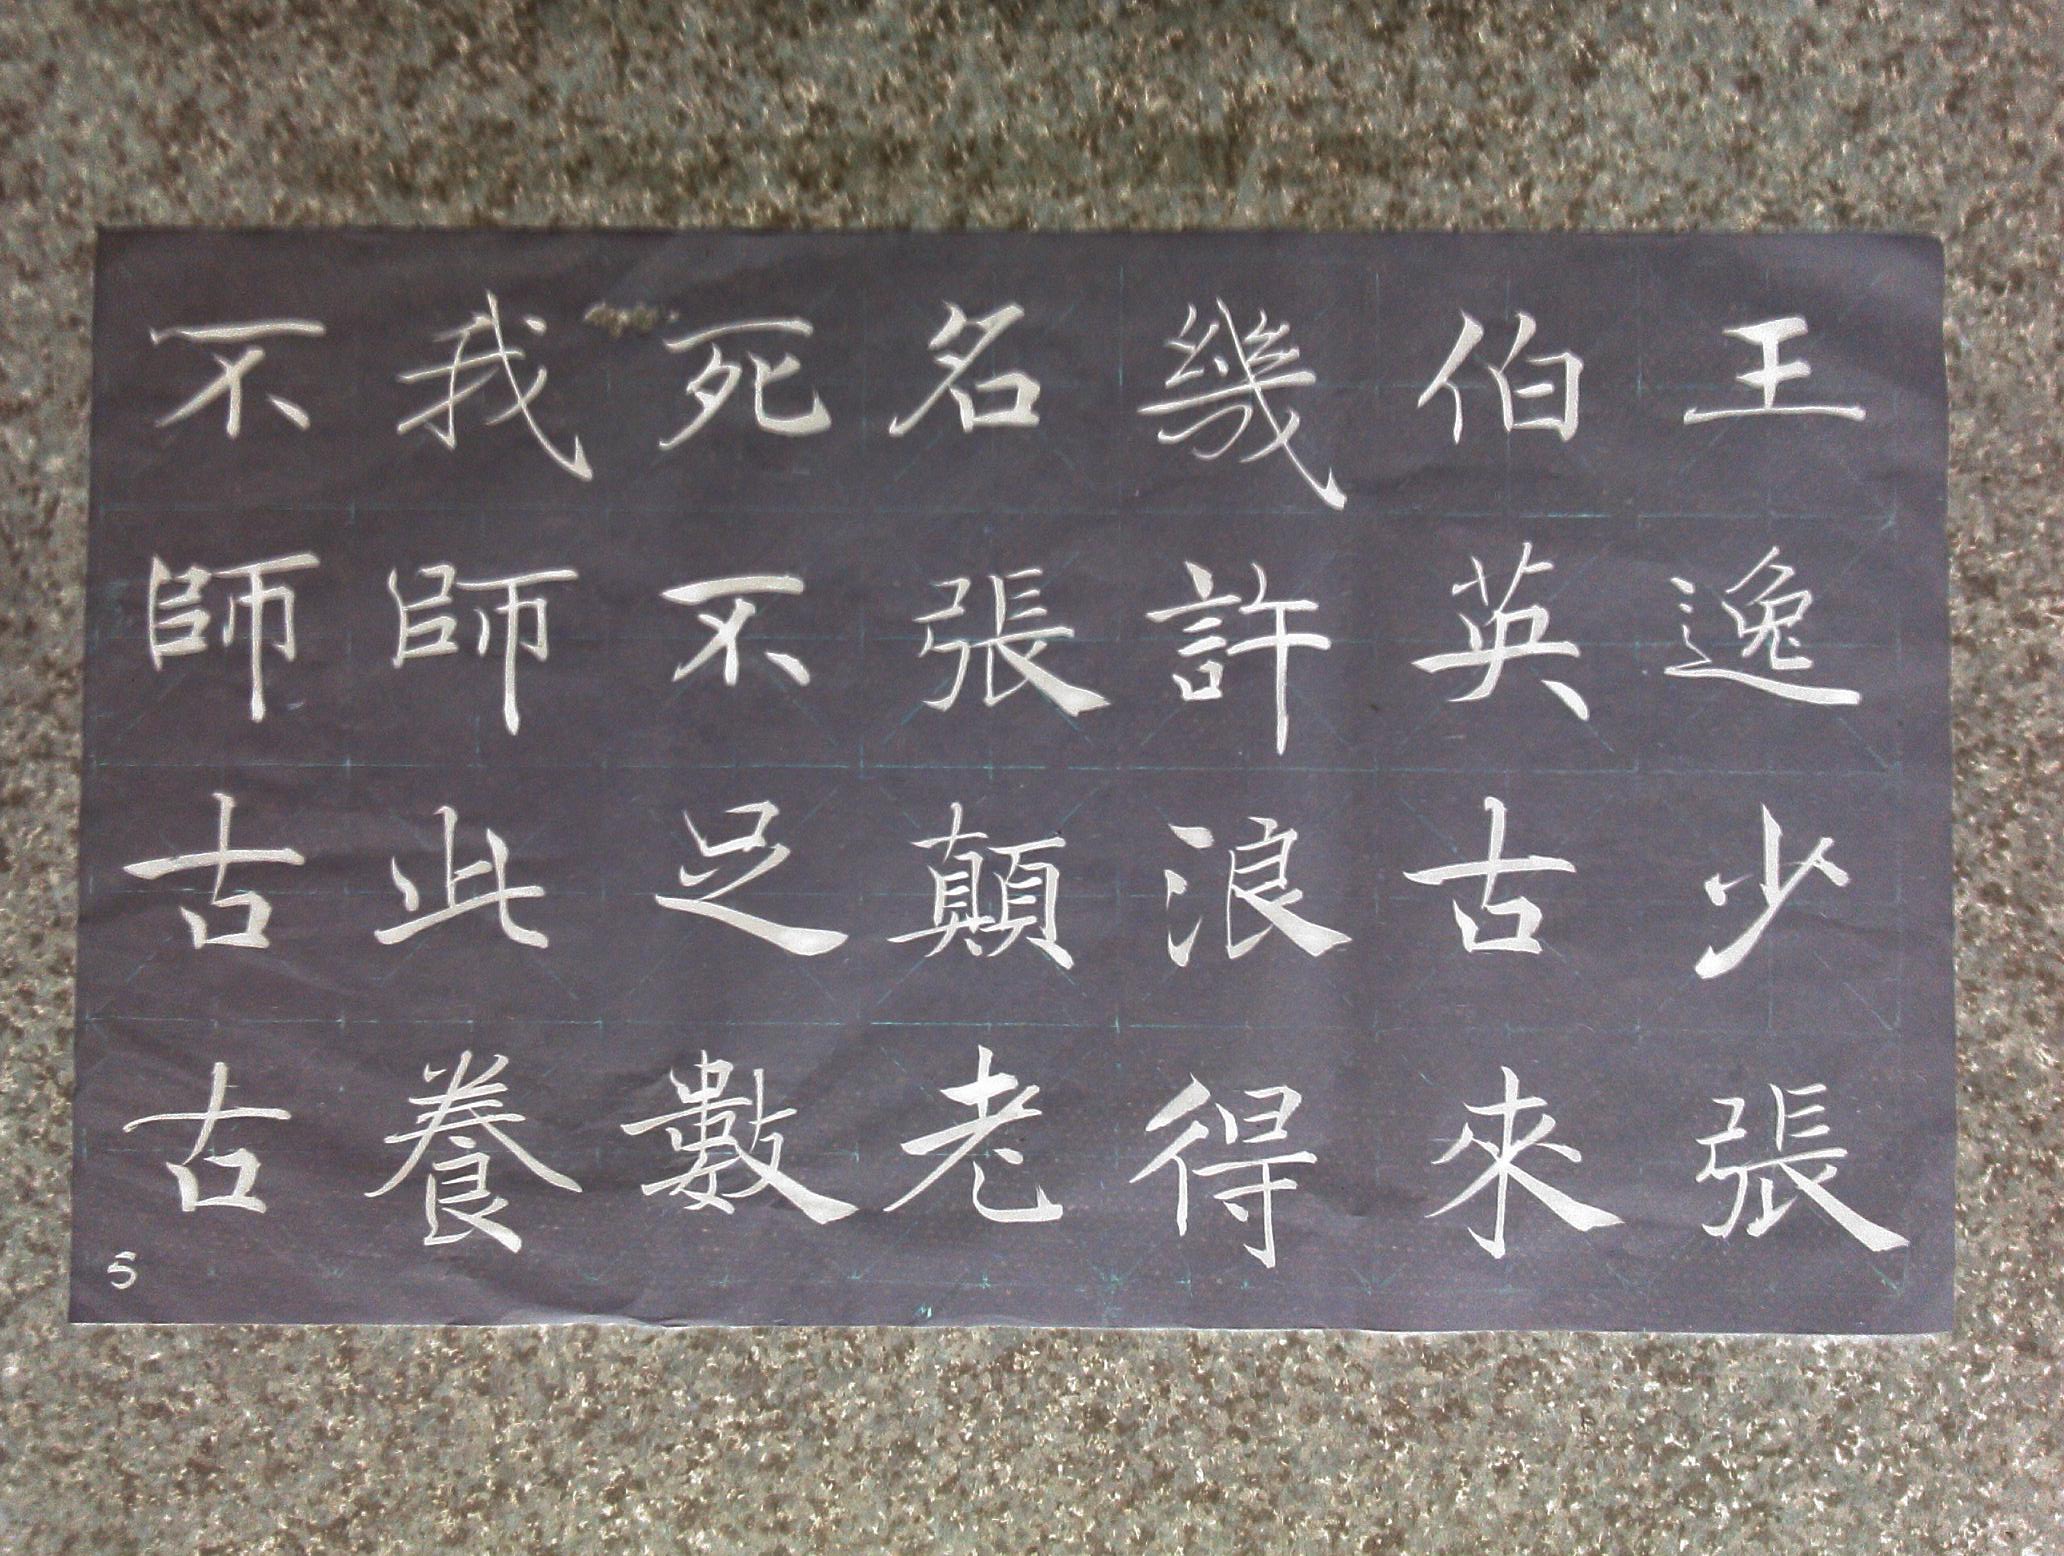 王逸少張
伯英古來
幾許浪得
名張顛老
死不足數
我師此養
不師古古
5